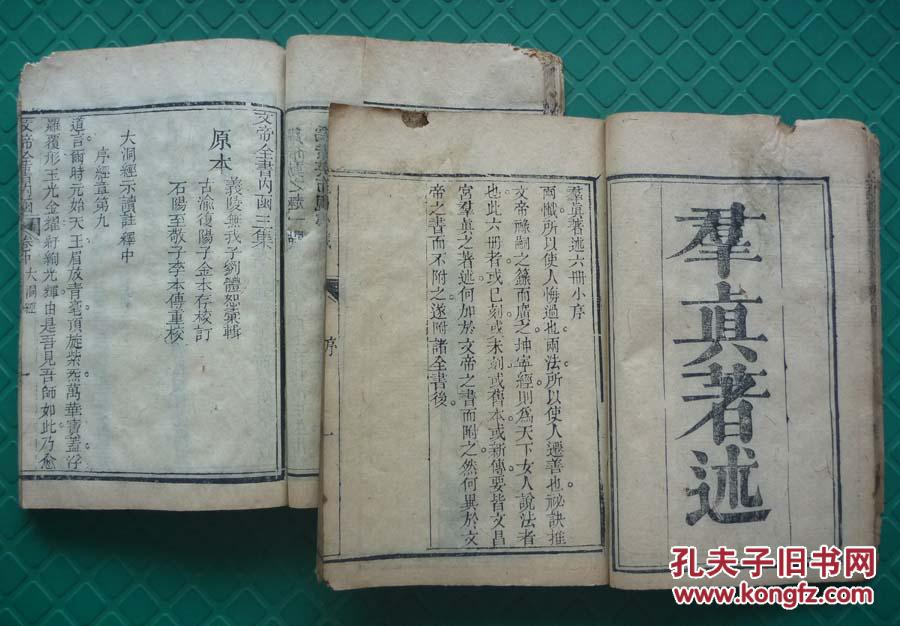 羣眞著述
羣眞著述六冊小序
兩懺所以使人悔過也兩法所以使人遷善也祕訣推
文帝祿嗣之籙而廣之坤寧經則爲天下女人說法者
也此六冊者或已刻或未刻或舊本或新傳要皆文昌
宮羣眞之著述何加於文帝之書而附之然何異於文
帝之書而不附之遂附諸全書後
序
一
文帝全書內函三集
原本
義陵無我子劉體恕彙輯
古渝復陽子金本存校訂
石陽至敬子李本傳重校
大洞經示讀註釋中
序經章第九
道言爾時元始天王眉放青毫頂旋紫炁萬華寶蓋浮
羅覆形玉光金耀紆絢光輝由是吾見吾師如此乃愈
文帝全書內函
大洞經
孔夫子旧书网
www.kongfz.com